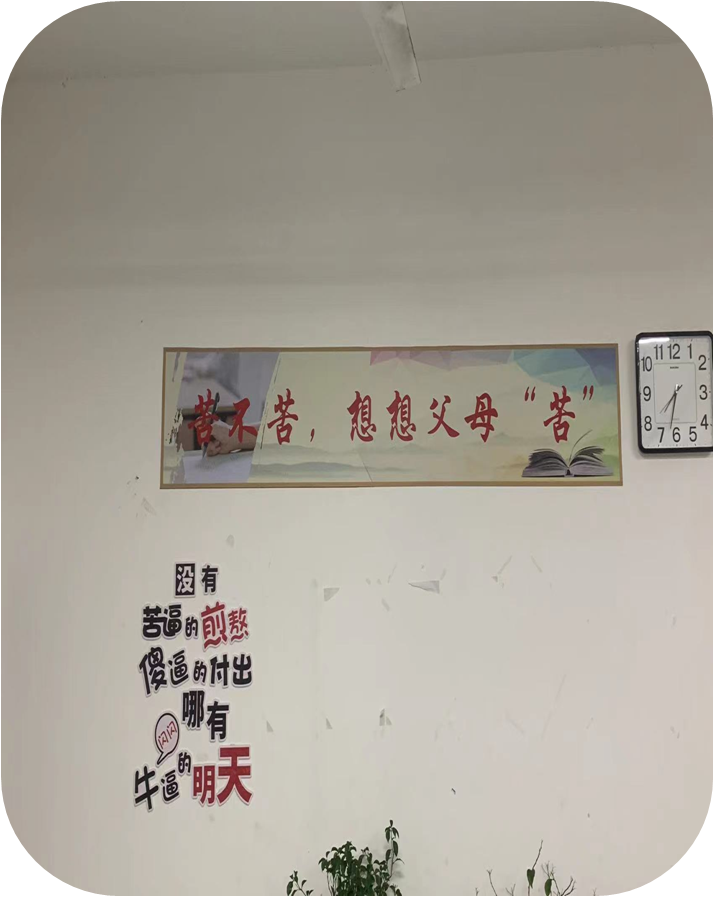 苦不苦，想想父母“苦”
11 12 1
10 2
9 3
8 4
7 6 5
没有
苦逼的煎熬
傻逼的付出
哪有
闪闪
牛逼的明天